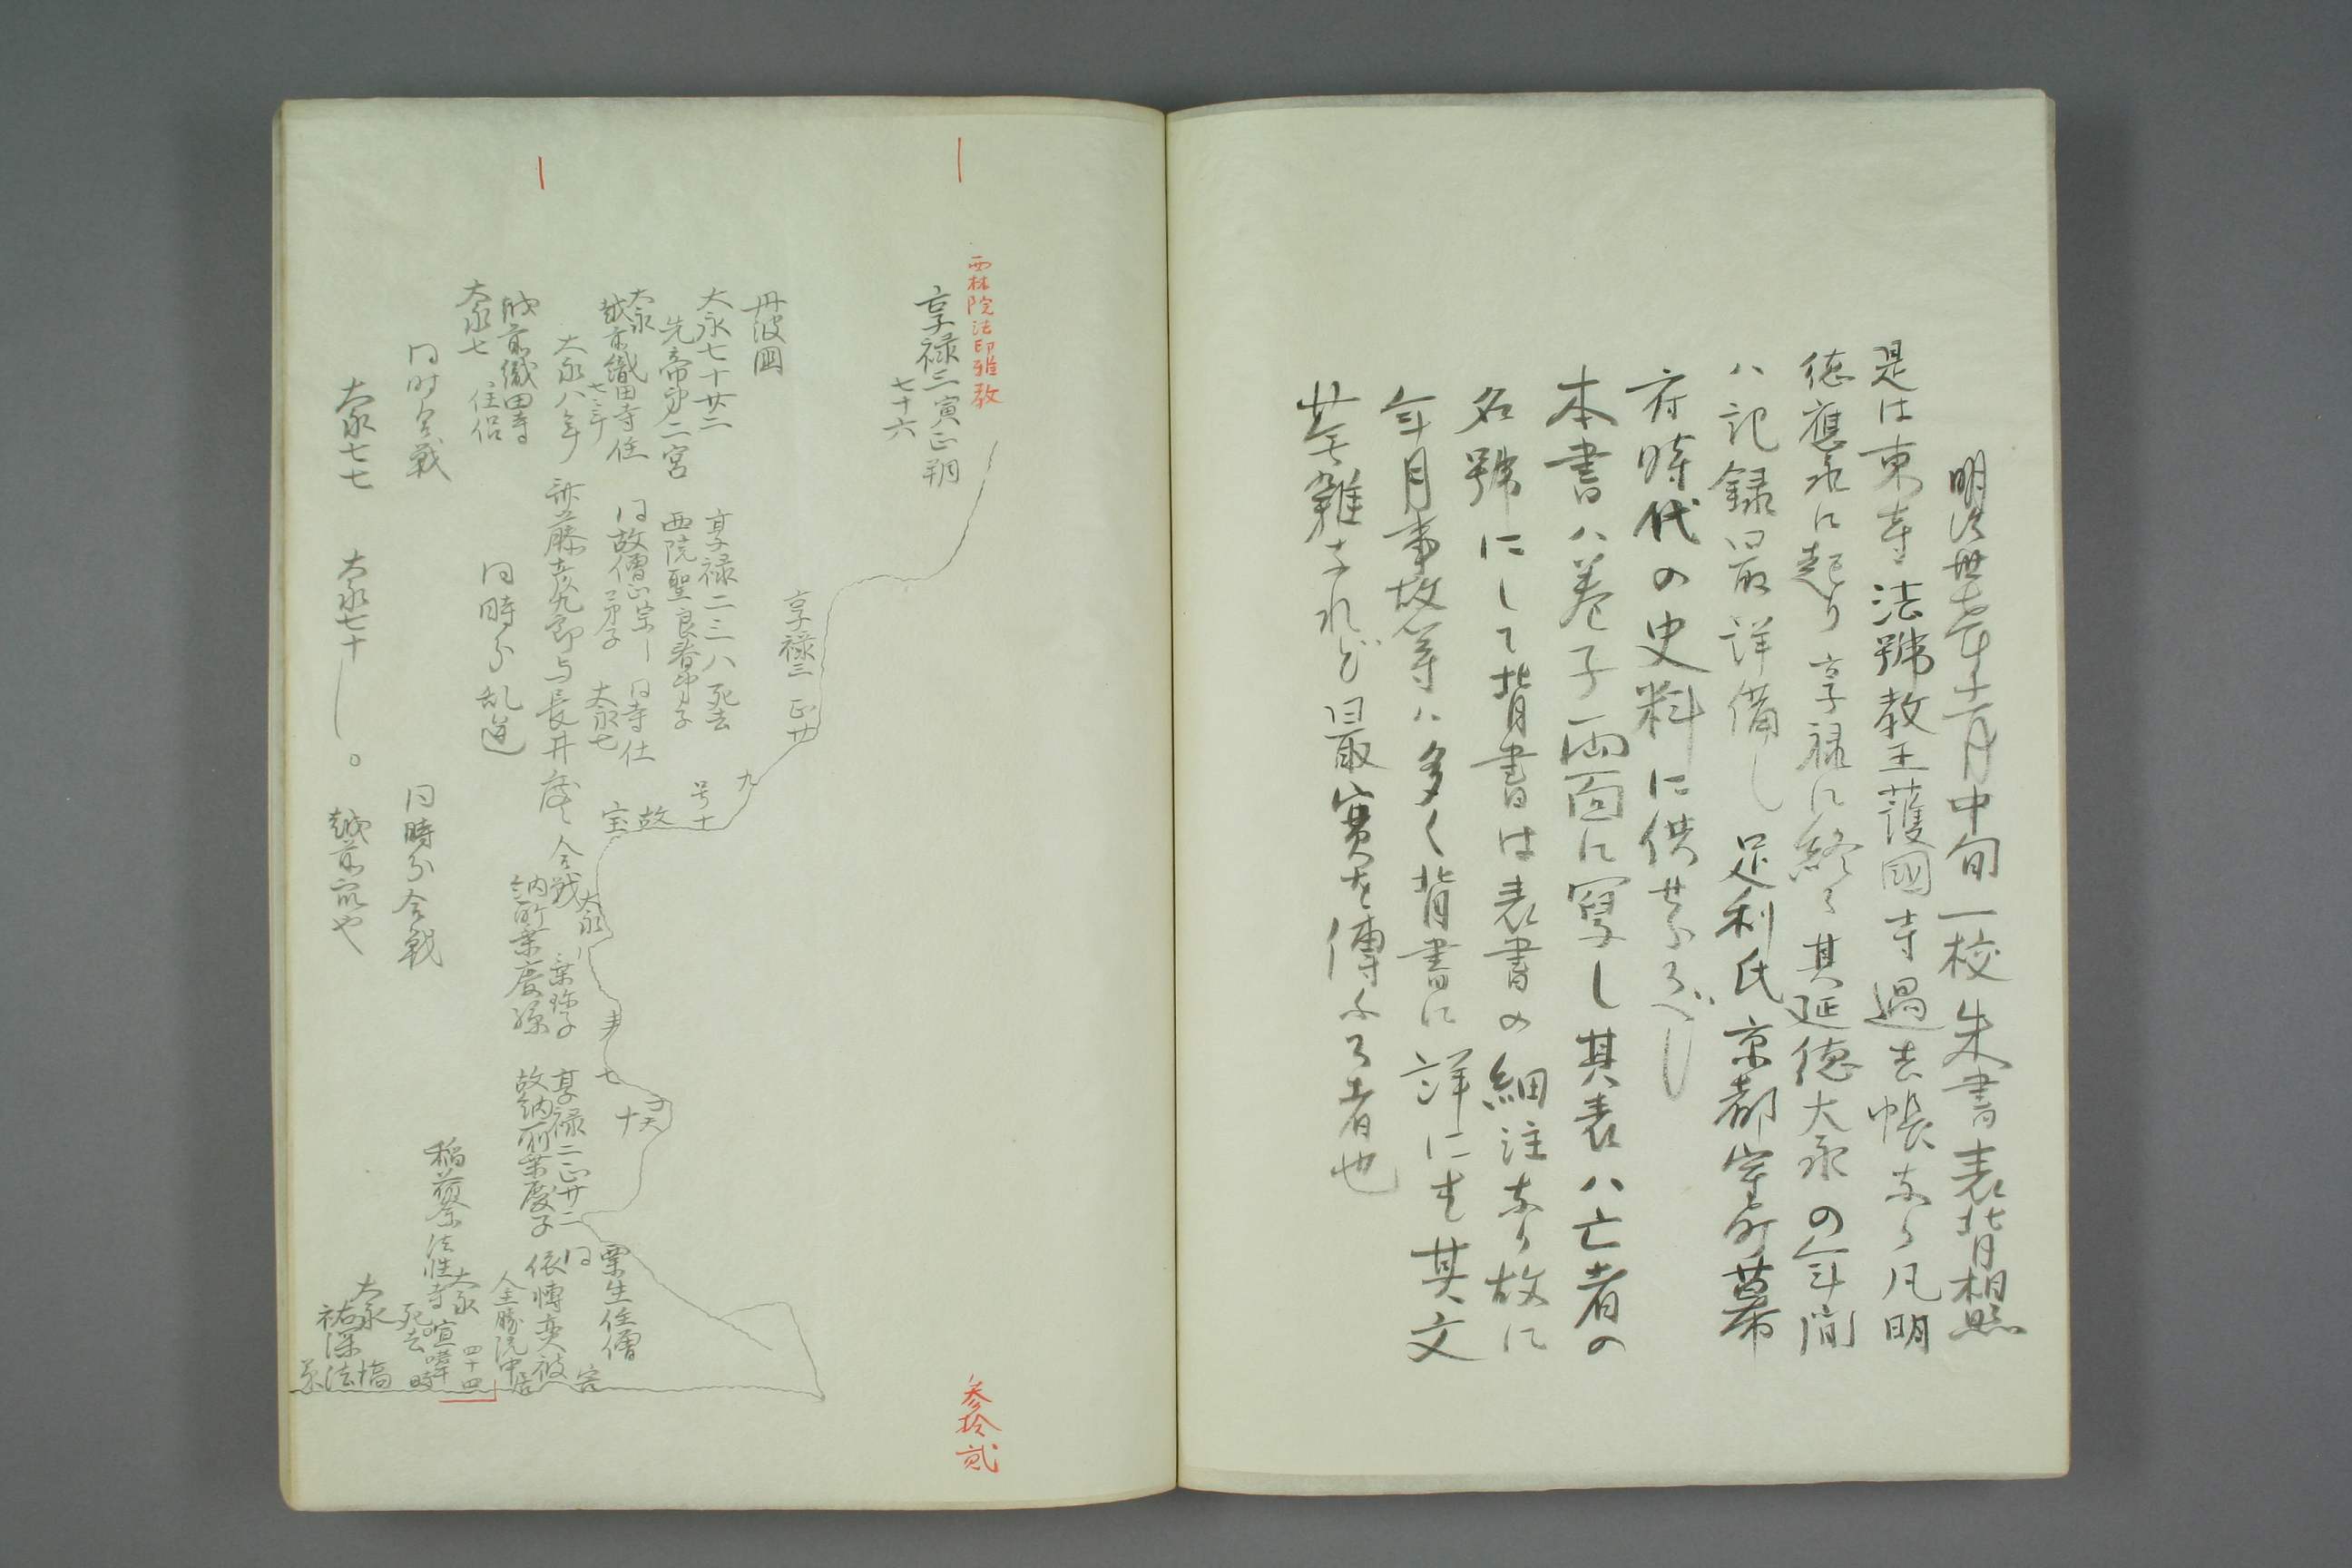 明治廿七年十二月中旬一校朱書表背相照
是は東寺法號教王護國寺過去帳なり凡明
徳應永に起り享禄に終る其延徳大永の年間
ハ記録最詳備し足利氏京都室町幕
府時代の史料に供せらるべし
本書ハ巻子両面に寫し其表ハ亡者の
名號にして背書は表書の細注なり故に
年月事故等ハ多く背書に詳にす其文
蕪雜なれど最實を傳ふる者也
西林院法印雅教
享禄三寅正朔
七十六
享禄三正廿
九
号十
丹波國
大永七十廿二
享禄二三八死去
先帝第二宮
西院聖良春弟子
故
宝
大永
越前織田寺住
同故僧正宗
同寺住
七ミ年
弟子
大永七
大永八年
斎藤彦九郎与長井
合戦
大永
納所乗慶孫
乗珎子
七
十
享禄二正廿二
故納所乗慶子
粟生住僧
同
依博奕被
害
越前織田寺
大永七
住侶
同時分乱逆
全勝院中居
四十四
同時合戦
同時分合戦
稲葉法性寺喧嘩時
大永
死去
大永七七
大永七十
越前衆也
大永
祐深法橋